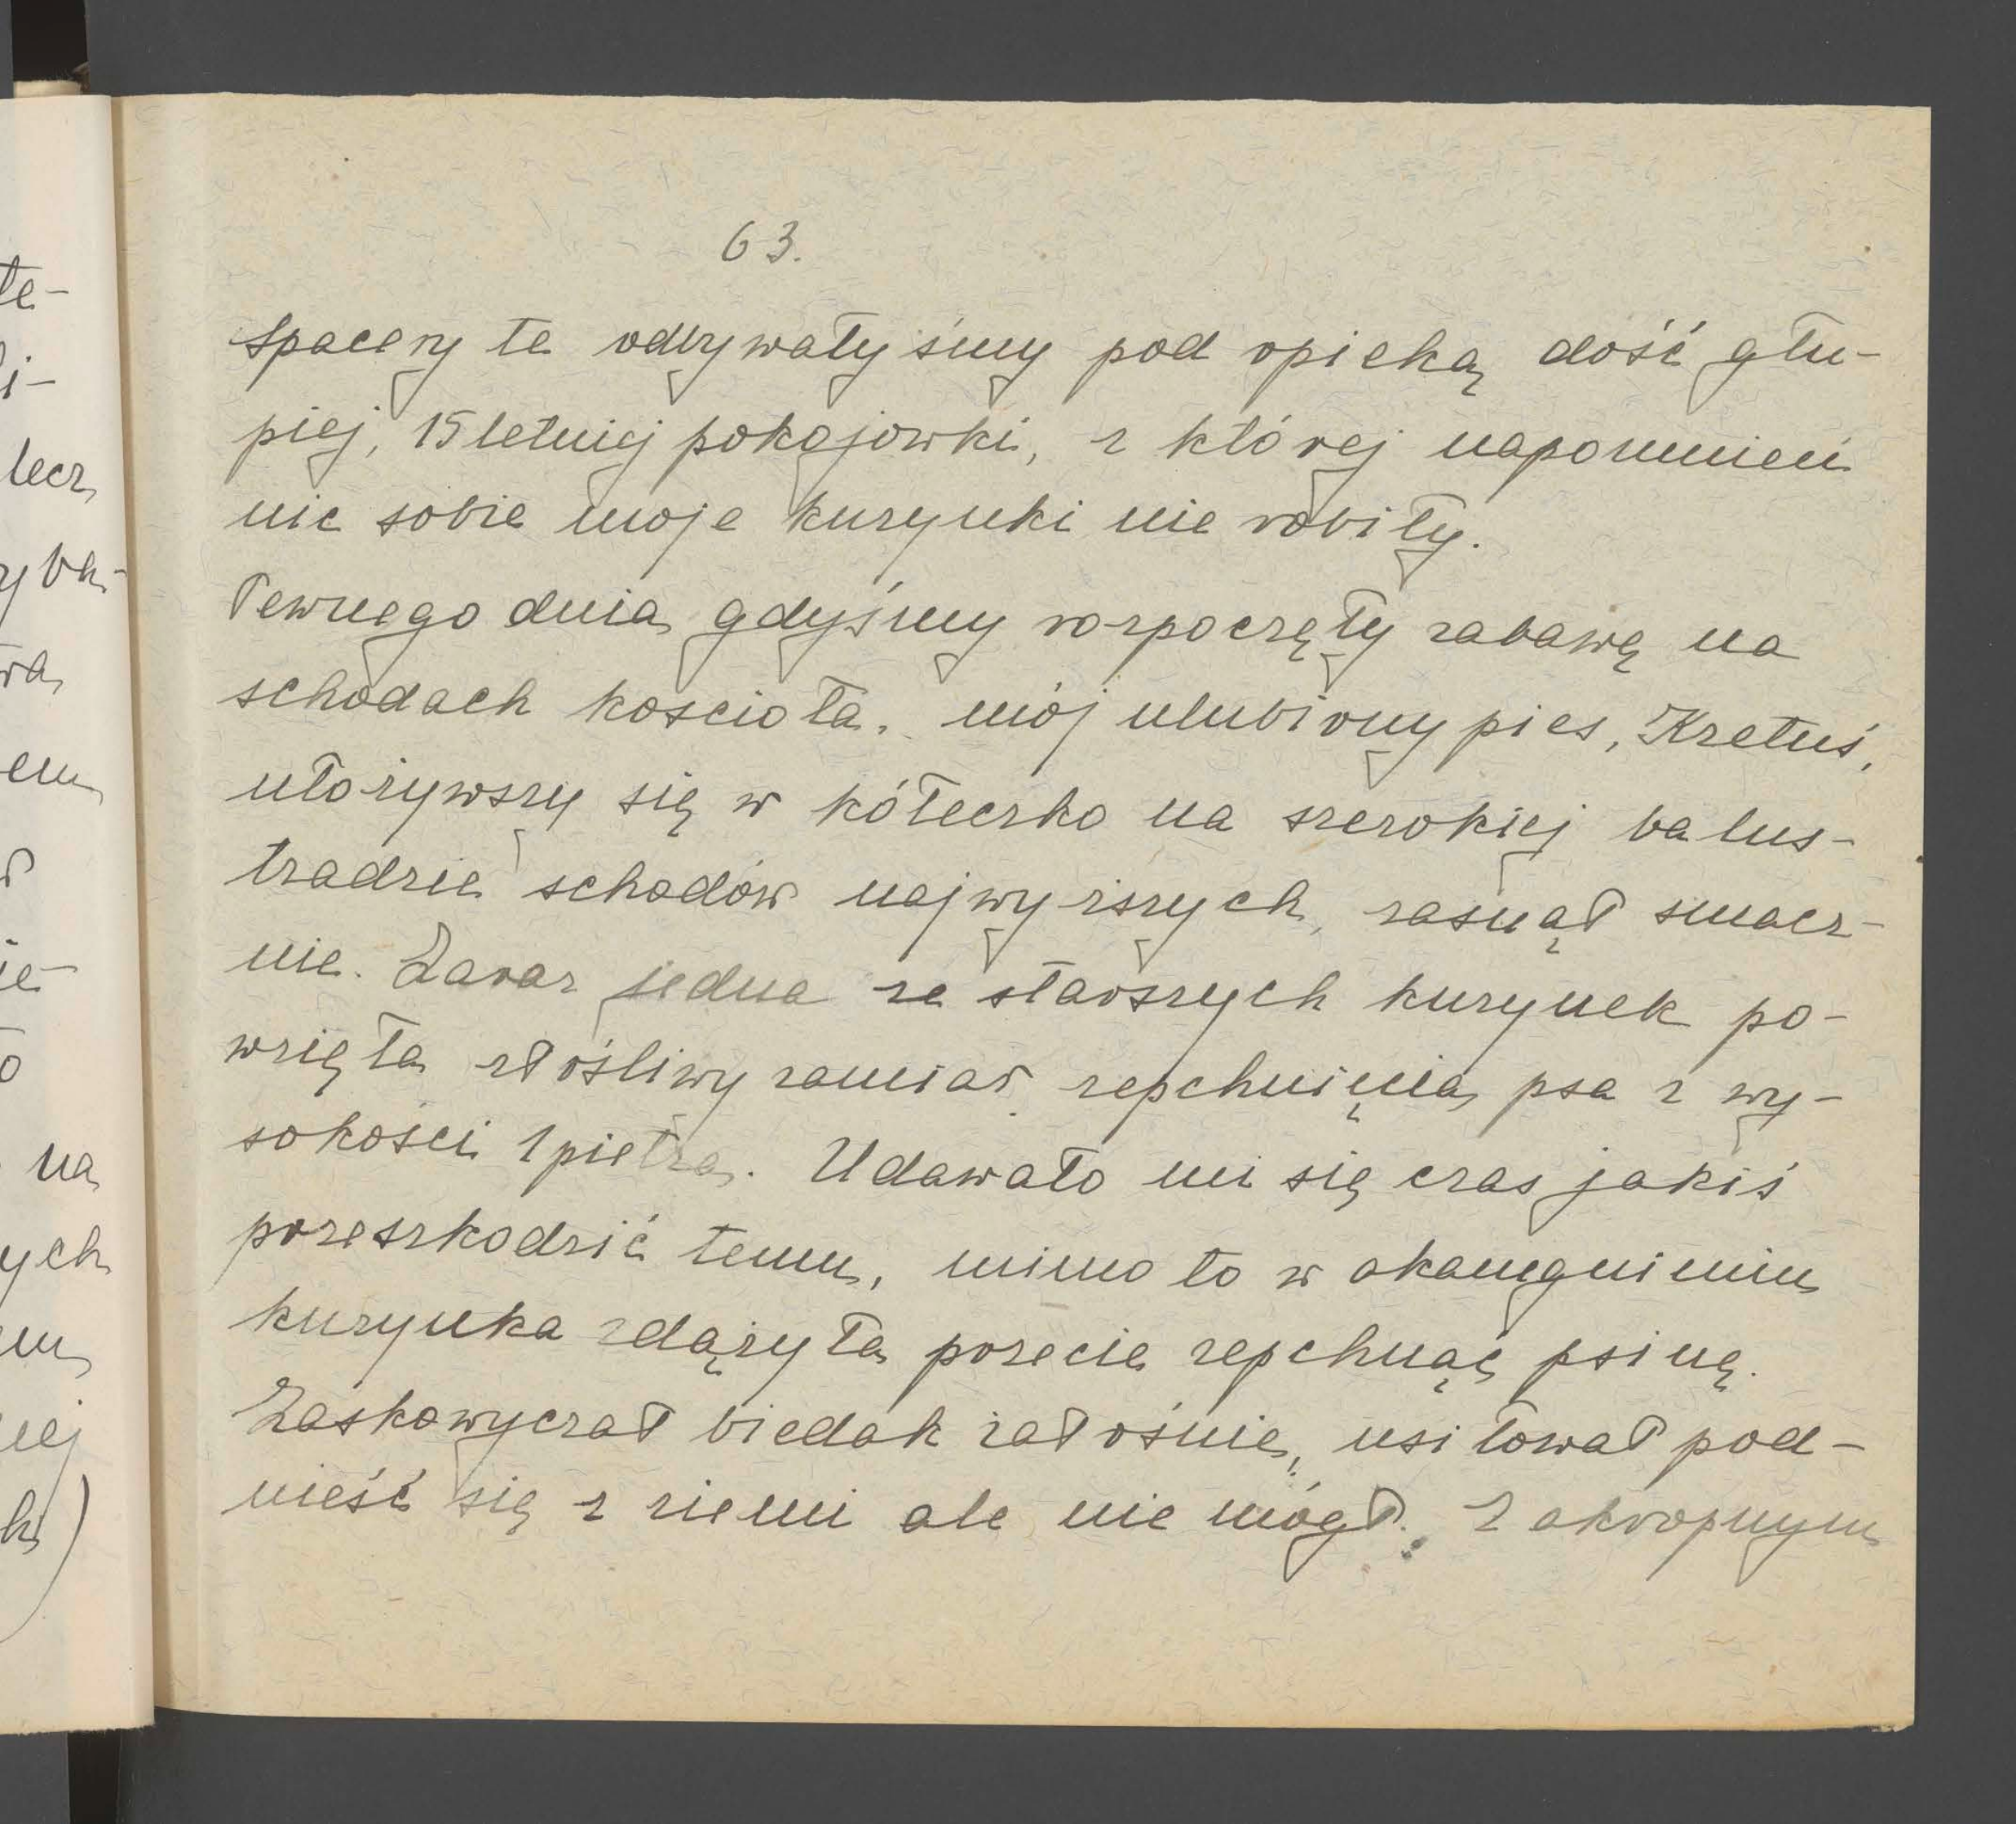 te-
i-
lecz
yba-
wa
em
ie-
na
ych
em
nej
k)
63.
Spacery te odbywałyśmy pod opieką dość głu-
piej, 15 letniej pokojowki, z której napomnień
nic sobie moje kuzynki nie robiły.
Pewnego dnia gdyśmy rozpoczęły zabawę na
schodach kościoła, mój ulubiony pies, Kretuś,
ułożywszy się w kółeczko na szerokiej balus-
tradzie schodów najwyższych, zasnął smacz-
nie. Zaraz jedna ze starszych kuzynek po-
wzięła złośliwy zamiar zepchnięcia psa z wy-
sokości 1 piętra. Udawało mi się czas jakiś
przeszkodzić temu, mimo to w okamgnieniu
kuzynka zdążyła przecie zepchnąć psinę.
Zaskowyczał biedak żałośnie, usiłował pod-
nieść się z ziemi ale nie mógł. Z okropnym